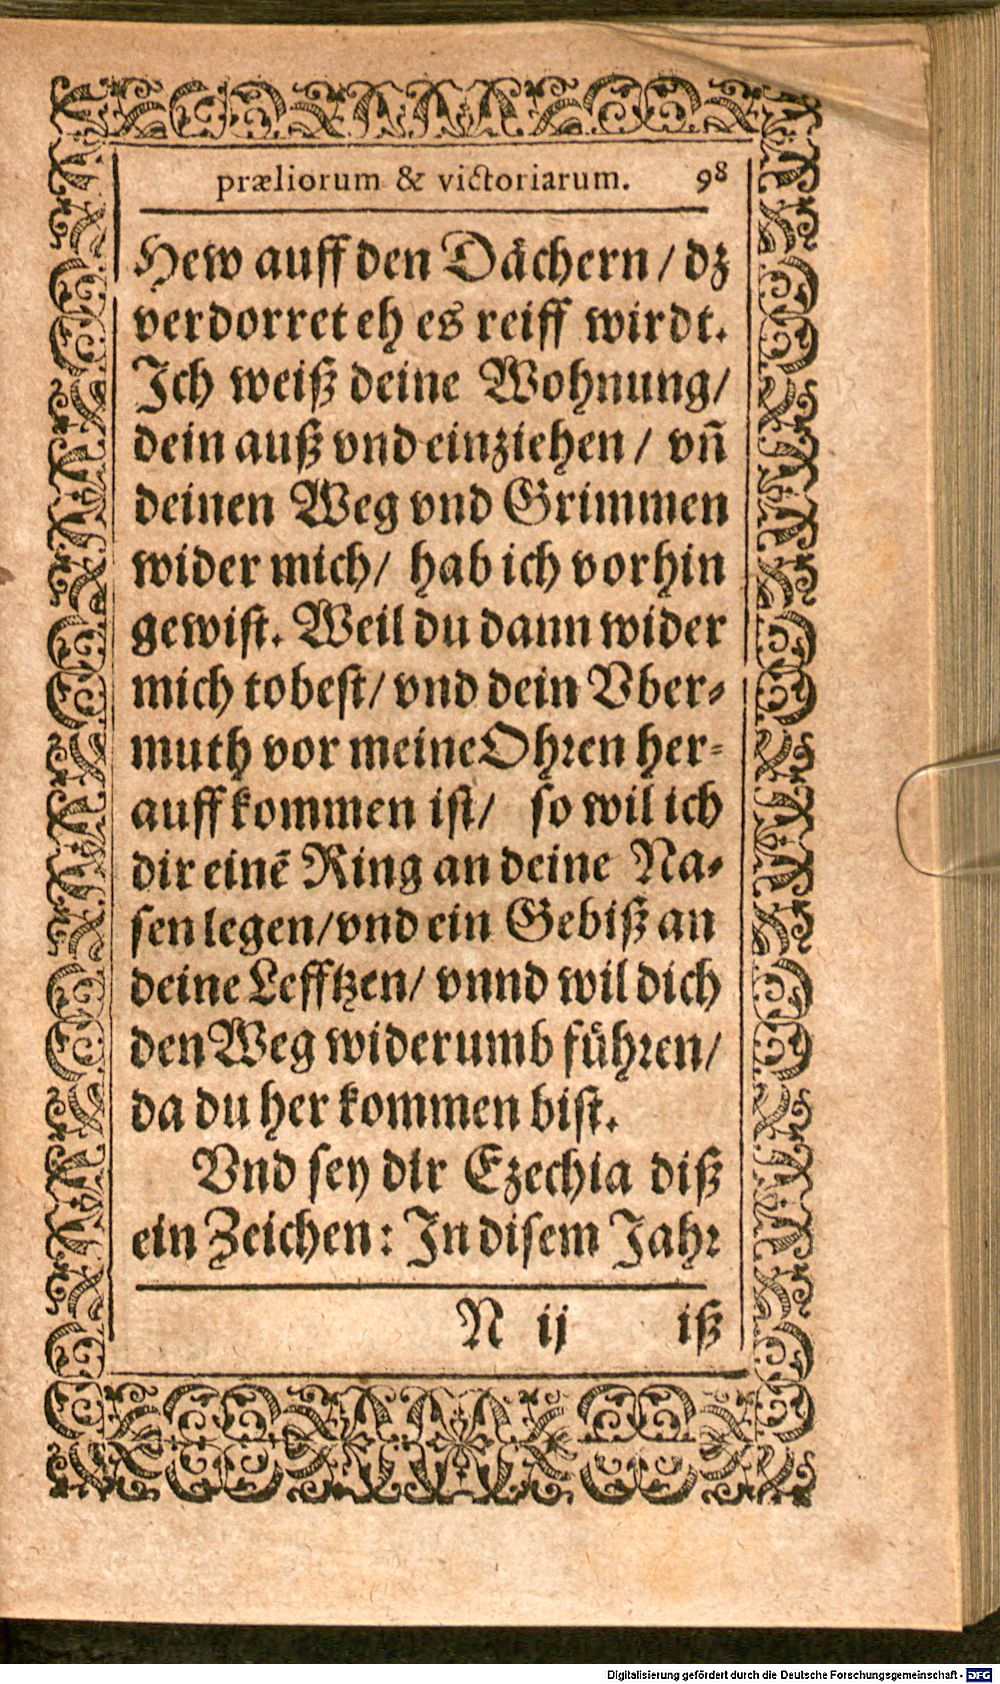 præliorum & victoriarum. 98
Hew auff den Dächern / dz
verdorret eh es reiff wirdt.
Ich weiß deine Wohnung/
dein auß vnd einziehen / vñ
deinen Weg vnd Grimmen
wider mich/ hab ich vorhin
gewist. Weil du dann wider
mich tobest/ vnd dein Vber-
muth vor meine Ohren her-
auff kommen ist/ so wil ich
dir einē Ring an deine Na-
sen legen/vnd ein Gebiß an
deine Lefftzen/ vnnd wil dich
den Weg widerumb führen/
da du her kommen bist.
Vnd sey dir Ezechia diß
ein Zeichen: In disem Jahr
N ij iß
Digitalisierung gefördert durch die Deutsche Forschungsgemeinschaft - DFG